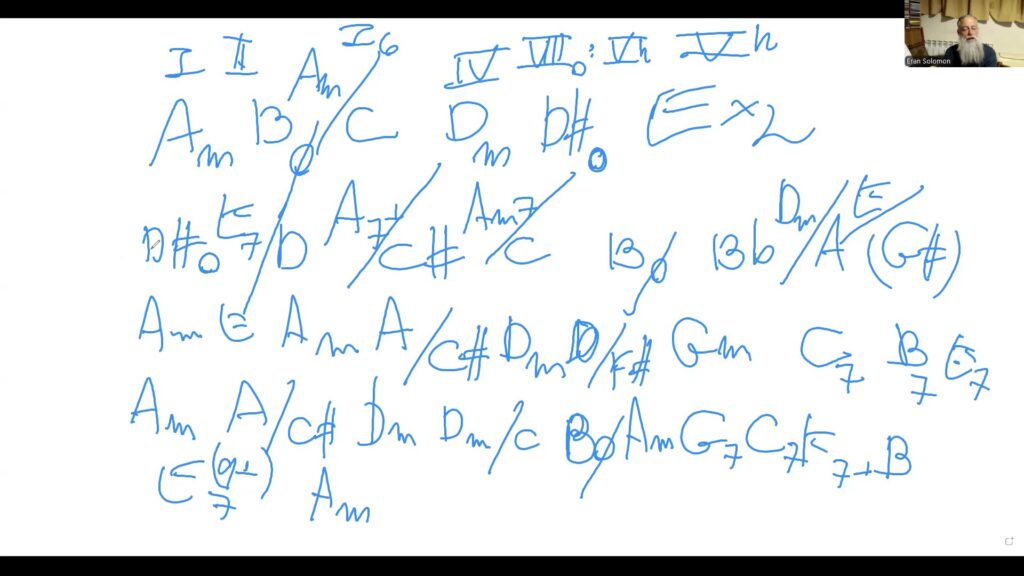 I II I6 IV VII0:Vh Vh
Am Bø Am/C Dm D#o E x2
D#o E7/D A7+/C# Am7/C Bø Bb Dm/A E (G#)
Am E Am A/C# Dm D/F# Gm C7 B7 E7
Am A/C# Dm Dm/C Bø Am G7 C7 E7+B
E7(9+) Am
Eran Solomon